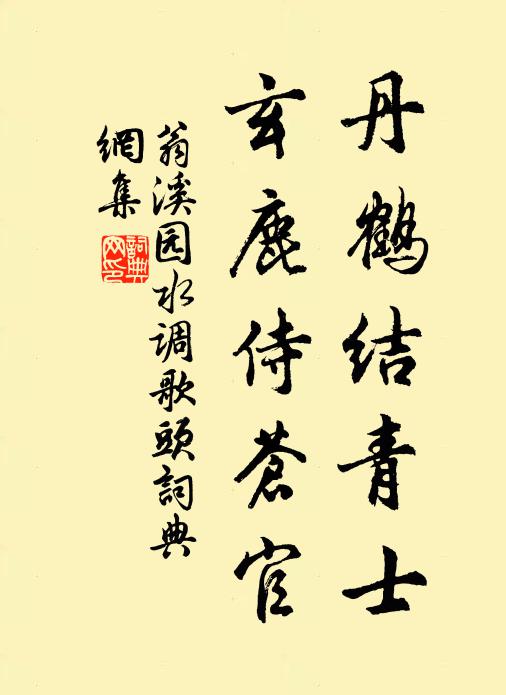 丹鹤结青士
玄鹿侍苍官
翁溪园水调歌头詞典
網集
詞典网印